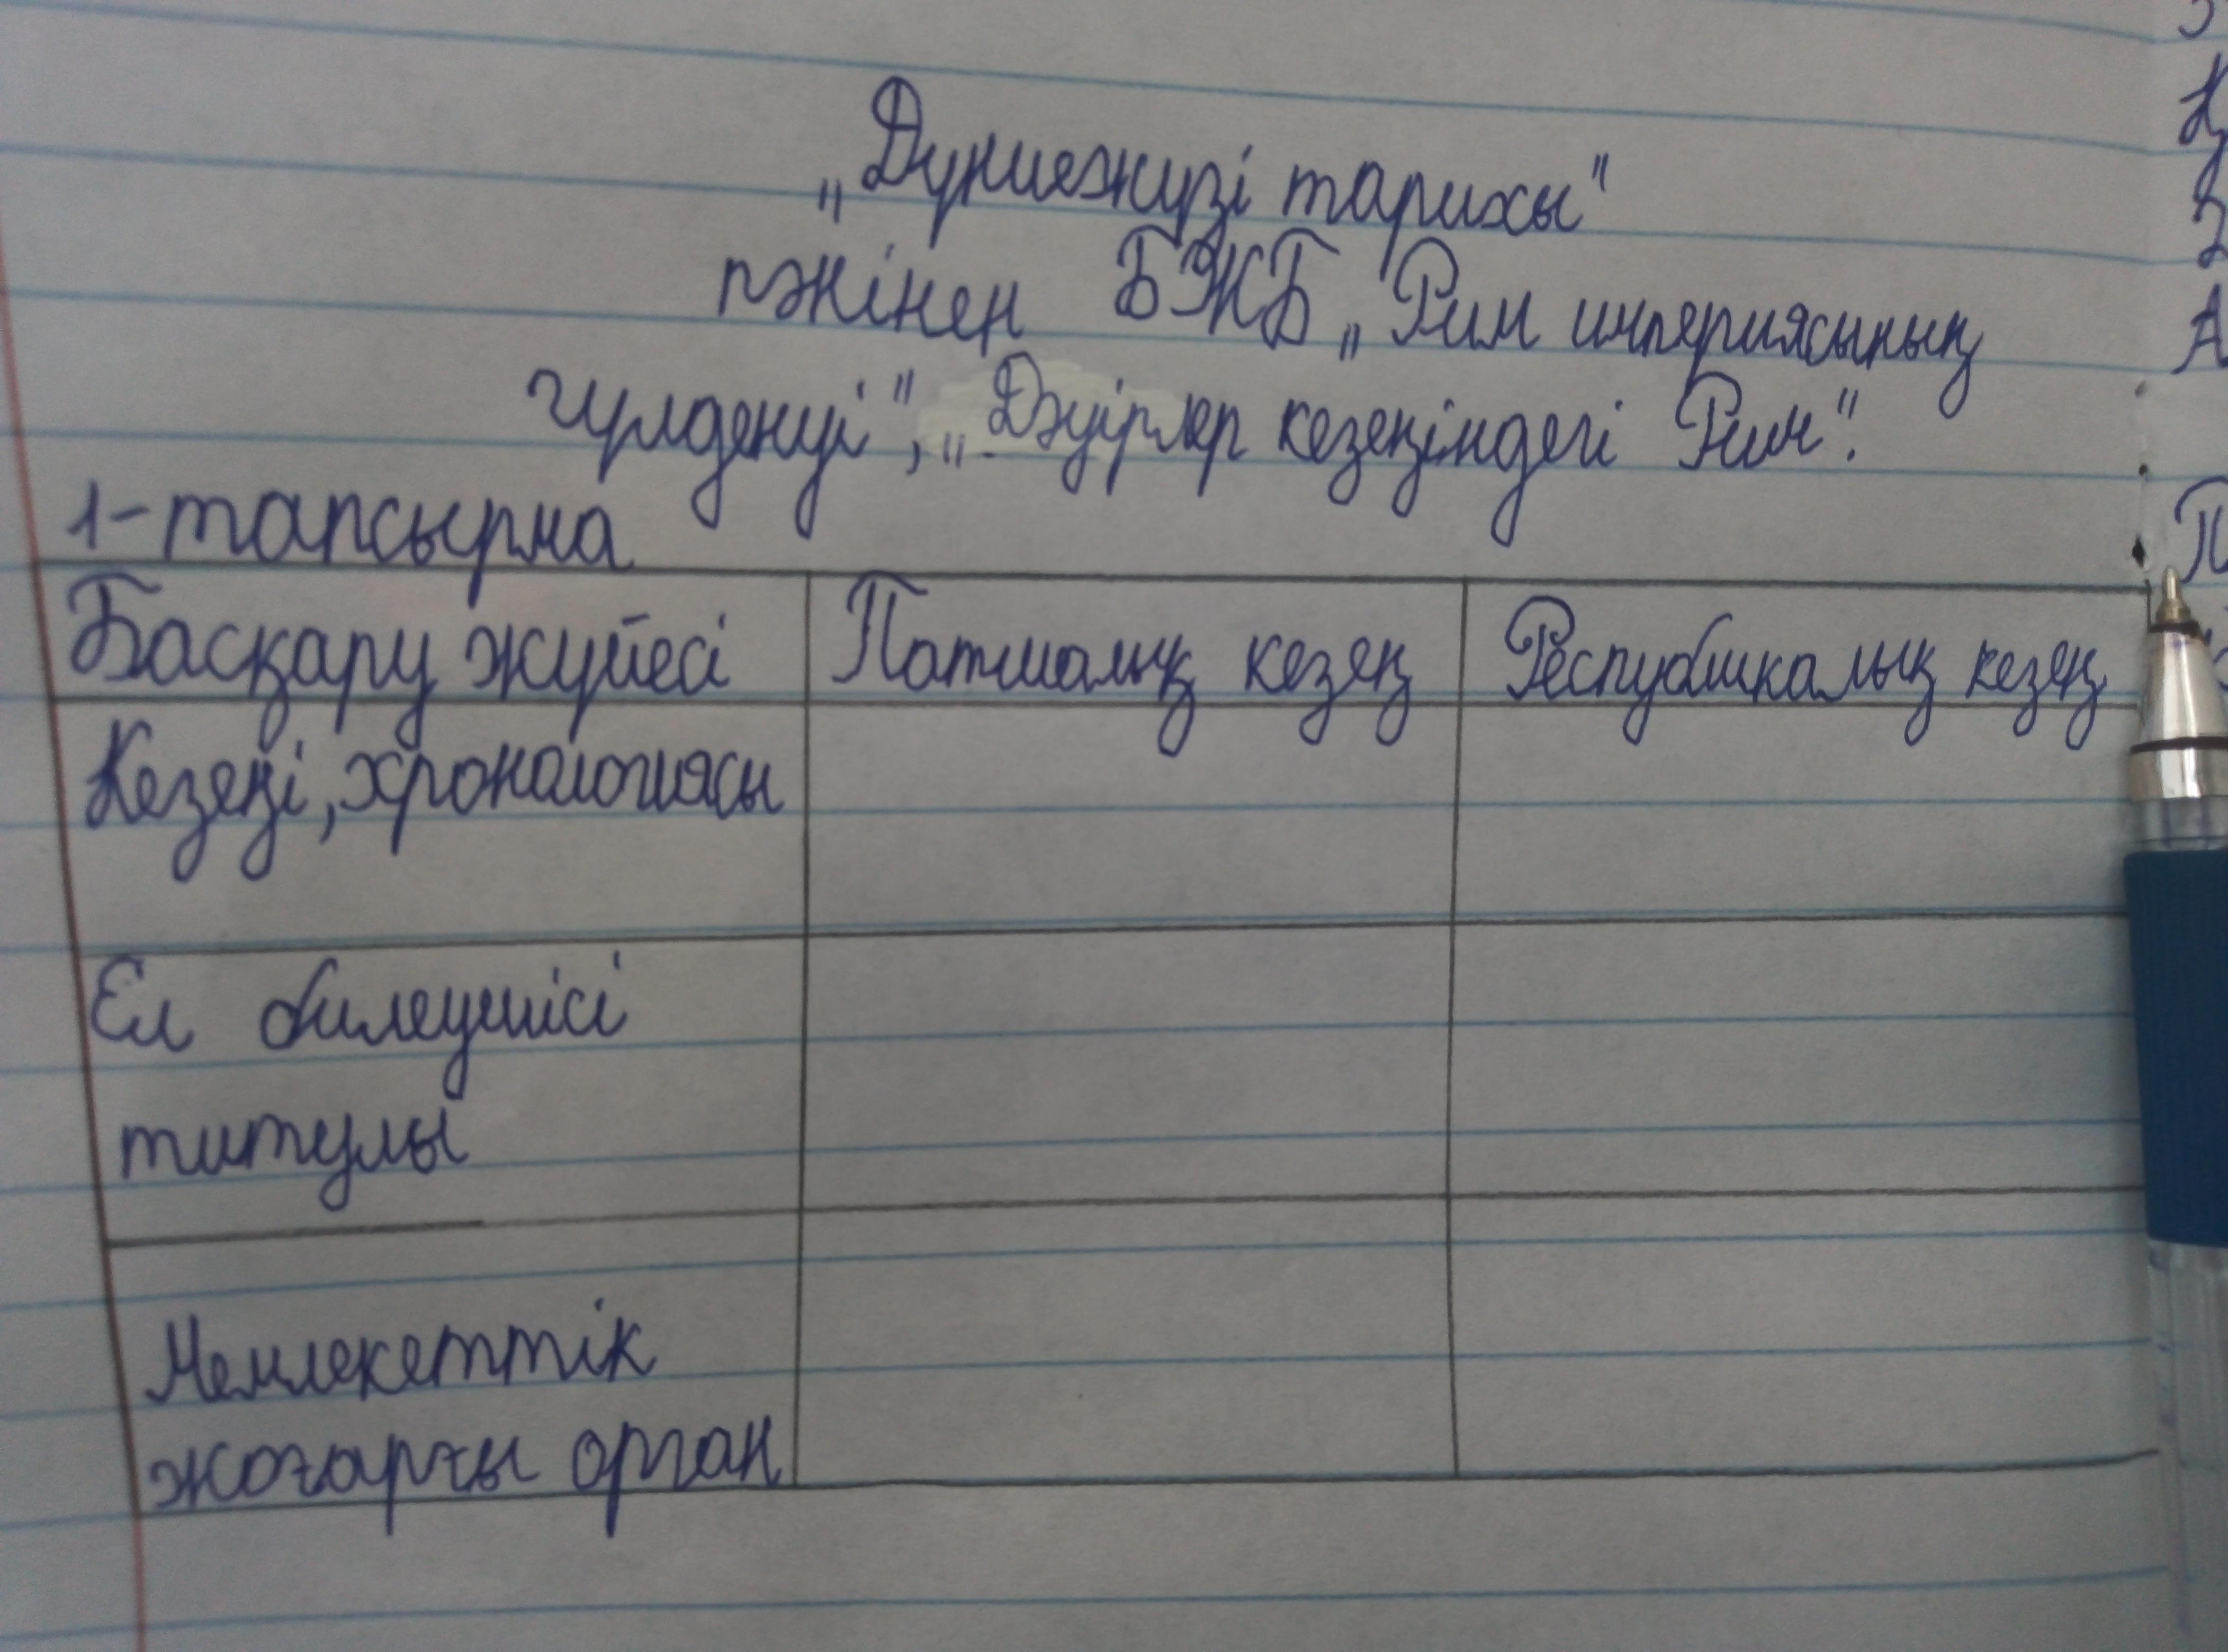 „Дүниежүзі тарихы"
пәнінен БЖБ „Рим империясының
гүлденуі", „Дәуірлер кезеңіндегі Рим".
1-тапсырма
Басқару жүйесі Патшалық кезең Республикалық кезең
Кезеңі, хронологиясы
Ел билеушісі
титулы
Мемлекеттік
жоғарғы орган